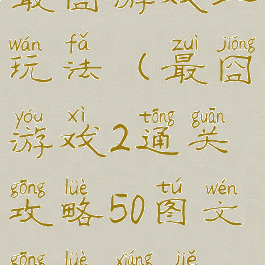 最囧游戏
wán fǎ zuì jiǒng
玩法（最囧
yóu xì tōng guān
游戏2通关
gōng lüè tú wén
攻略50图文
gōng lüè xiáng jiě